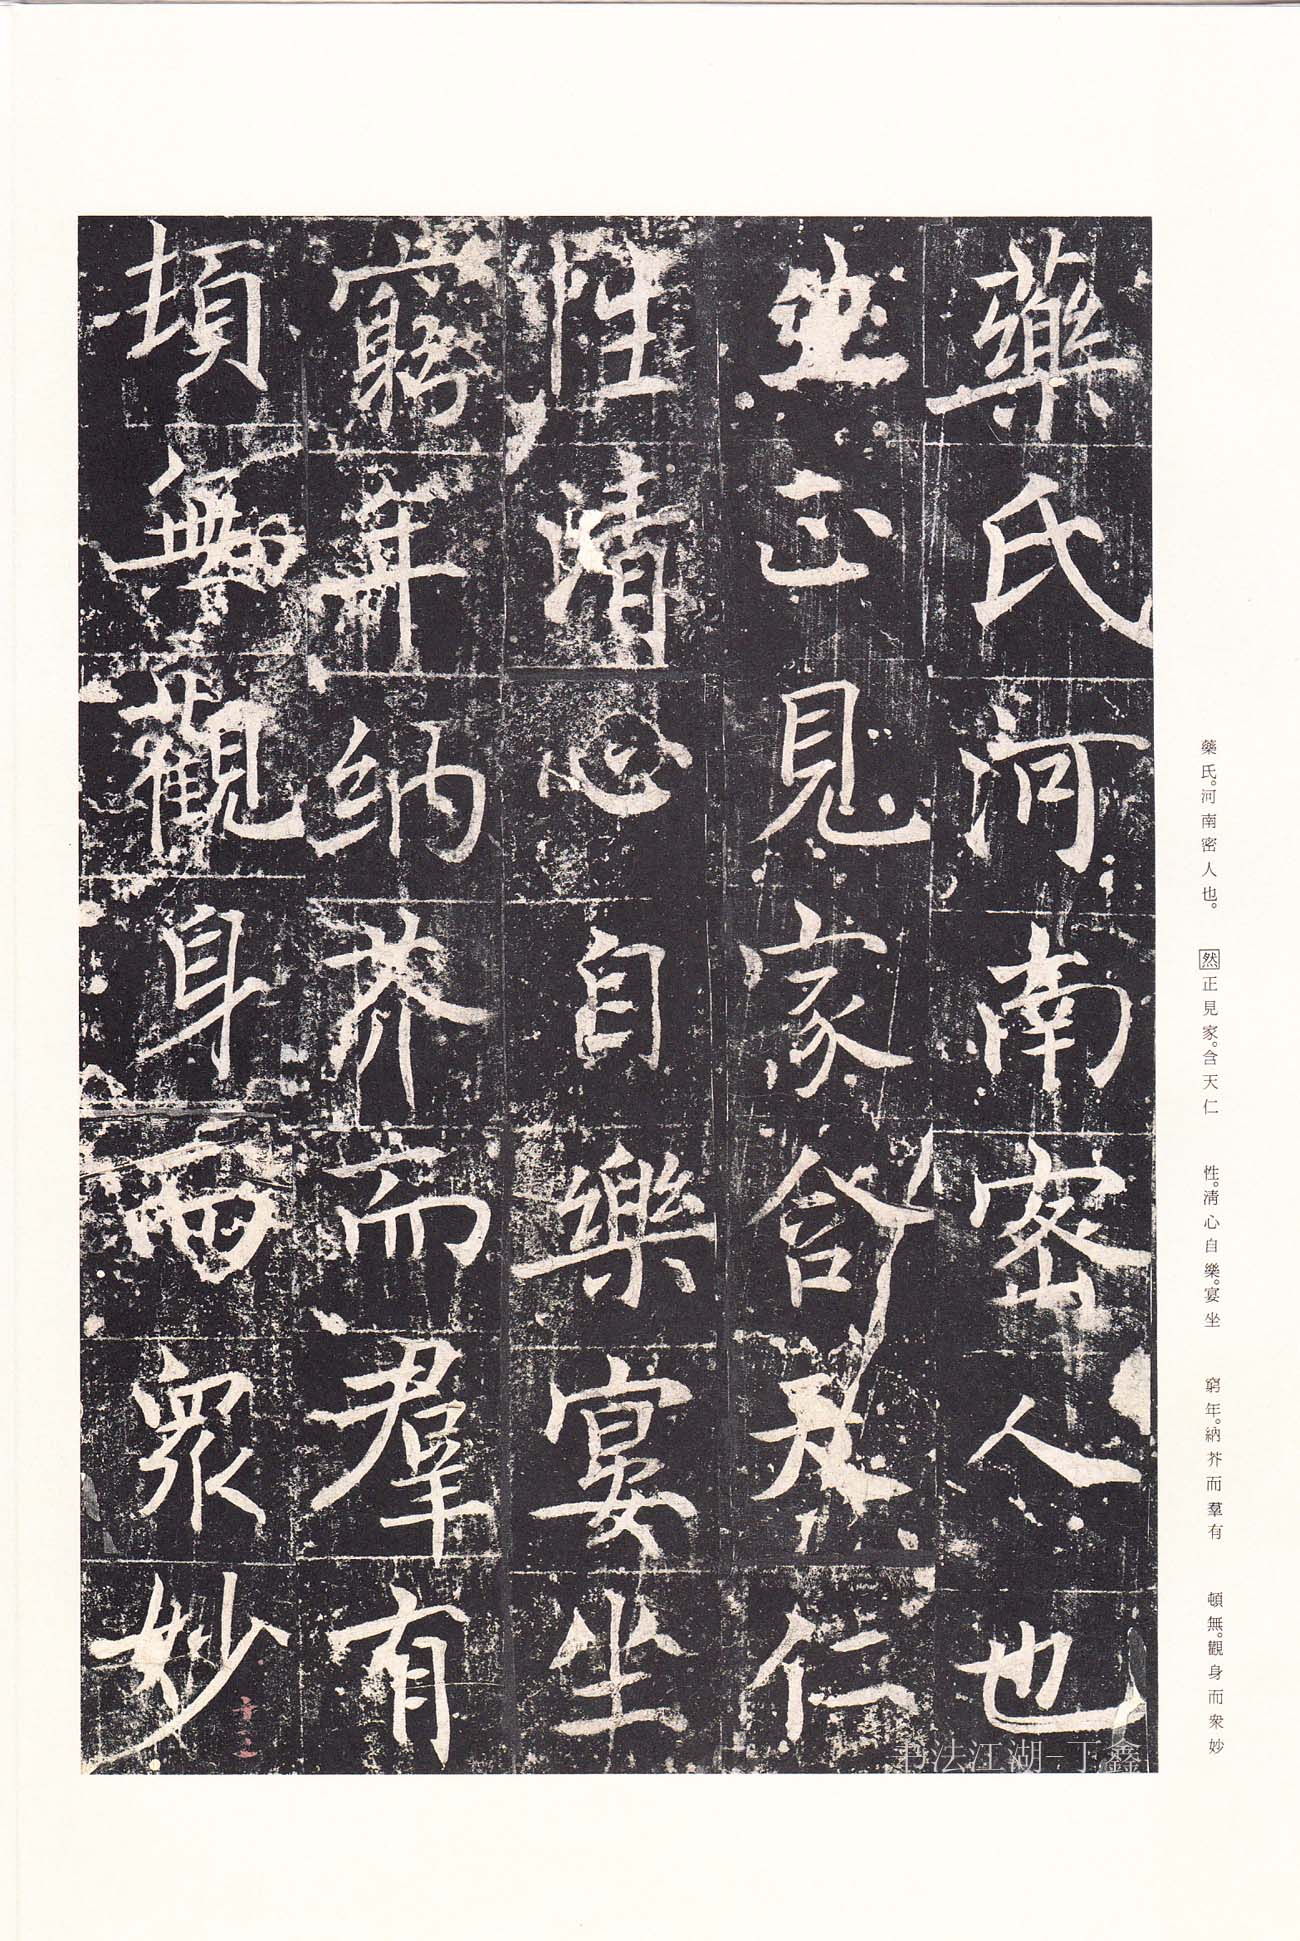 藥氏河南密人也
然正見家含天仁
性清心自樂宴坐
窮年納芥而羣有
頓無觀身而衆妙
藥氏。河南密人也。
然正見家。含天仁
性。清心自樂。宴坐
窮年。納芥而羣有
頓無。觀身而衆妙
书法江湖-丁鑫